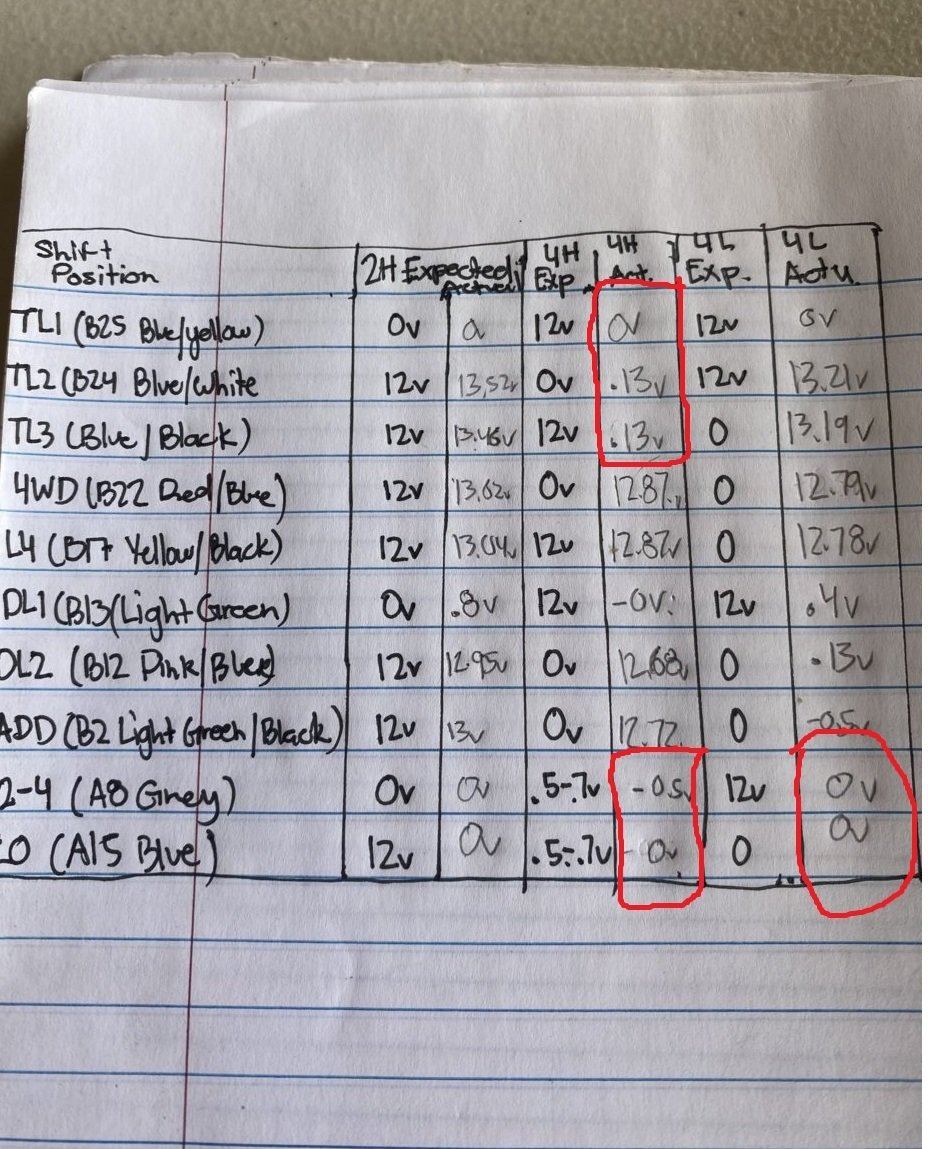 Shift Position 2H Expected Actual 4H Exp. 4H Act. 4L Exp. 4L Actu.
TL1 (B25 Blue/yellow) 0v 0v 12v 0v 12v 0v
TL2 (B24 Blue/White 12v 13.52v 0v .13v 12v 13.21v
TL3 (Blue/Black) 12v 13.48v 12v .13v 0 13.19v
4WD (B22 Red/Blue) 12v 13.62v 0v 12.87v 0 12.79v
L4 (B17 Yellow/Black) 12v 13.04v 12v 12.87v 0 12.78v
DL1 (B13 (Light Green) 0v .8v 12v -0v 12v .4v
DL2 (B12 Pink/ 12v 12.95v 0v 12.68v 0 .13v
ADD (B2 Light Green/Black) 12v 13v 0v 12.72 0 -0.5v
2-4 (A8 Grey) 0v 0v .5-.7v -0.5v 12v 0v
LO (A15 Blue) 12v 0v .5-.7v -0v 0 0v